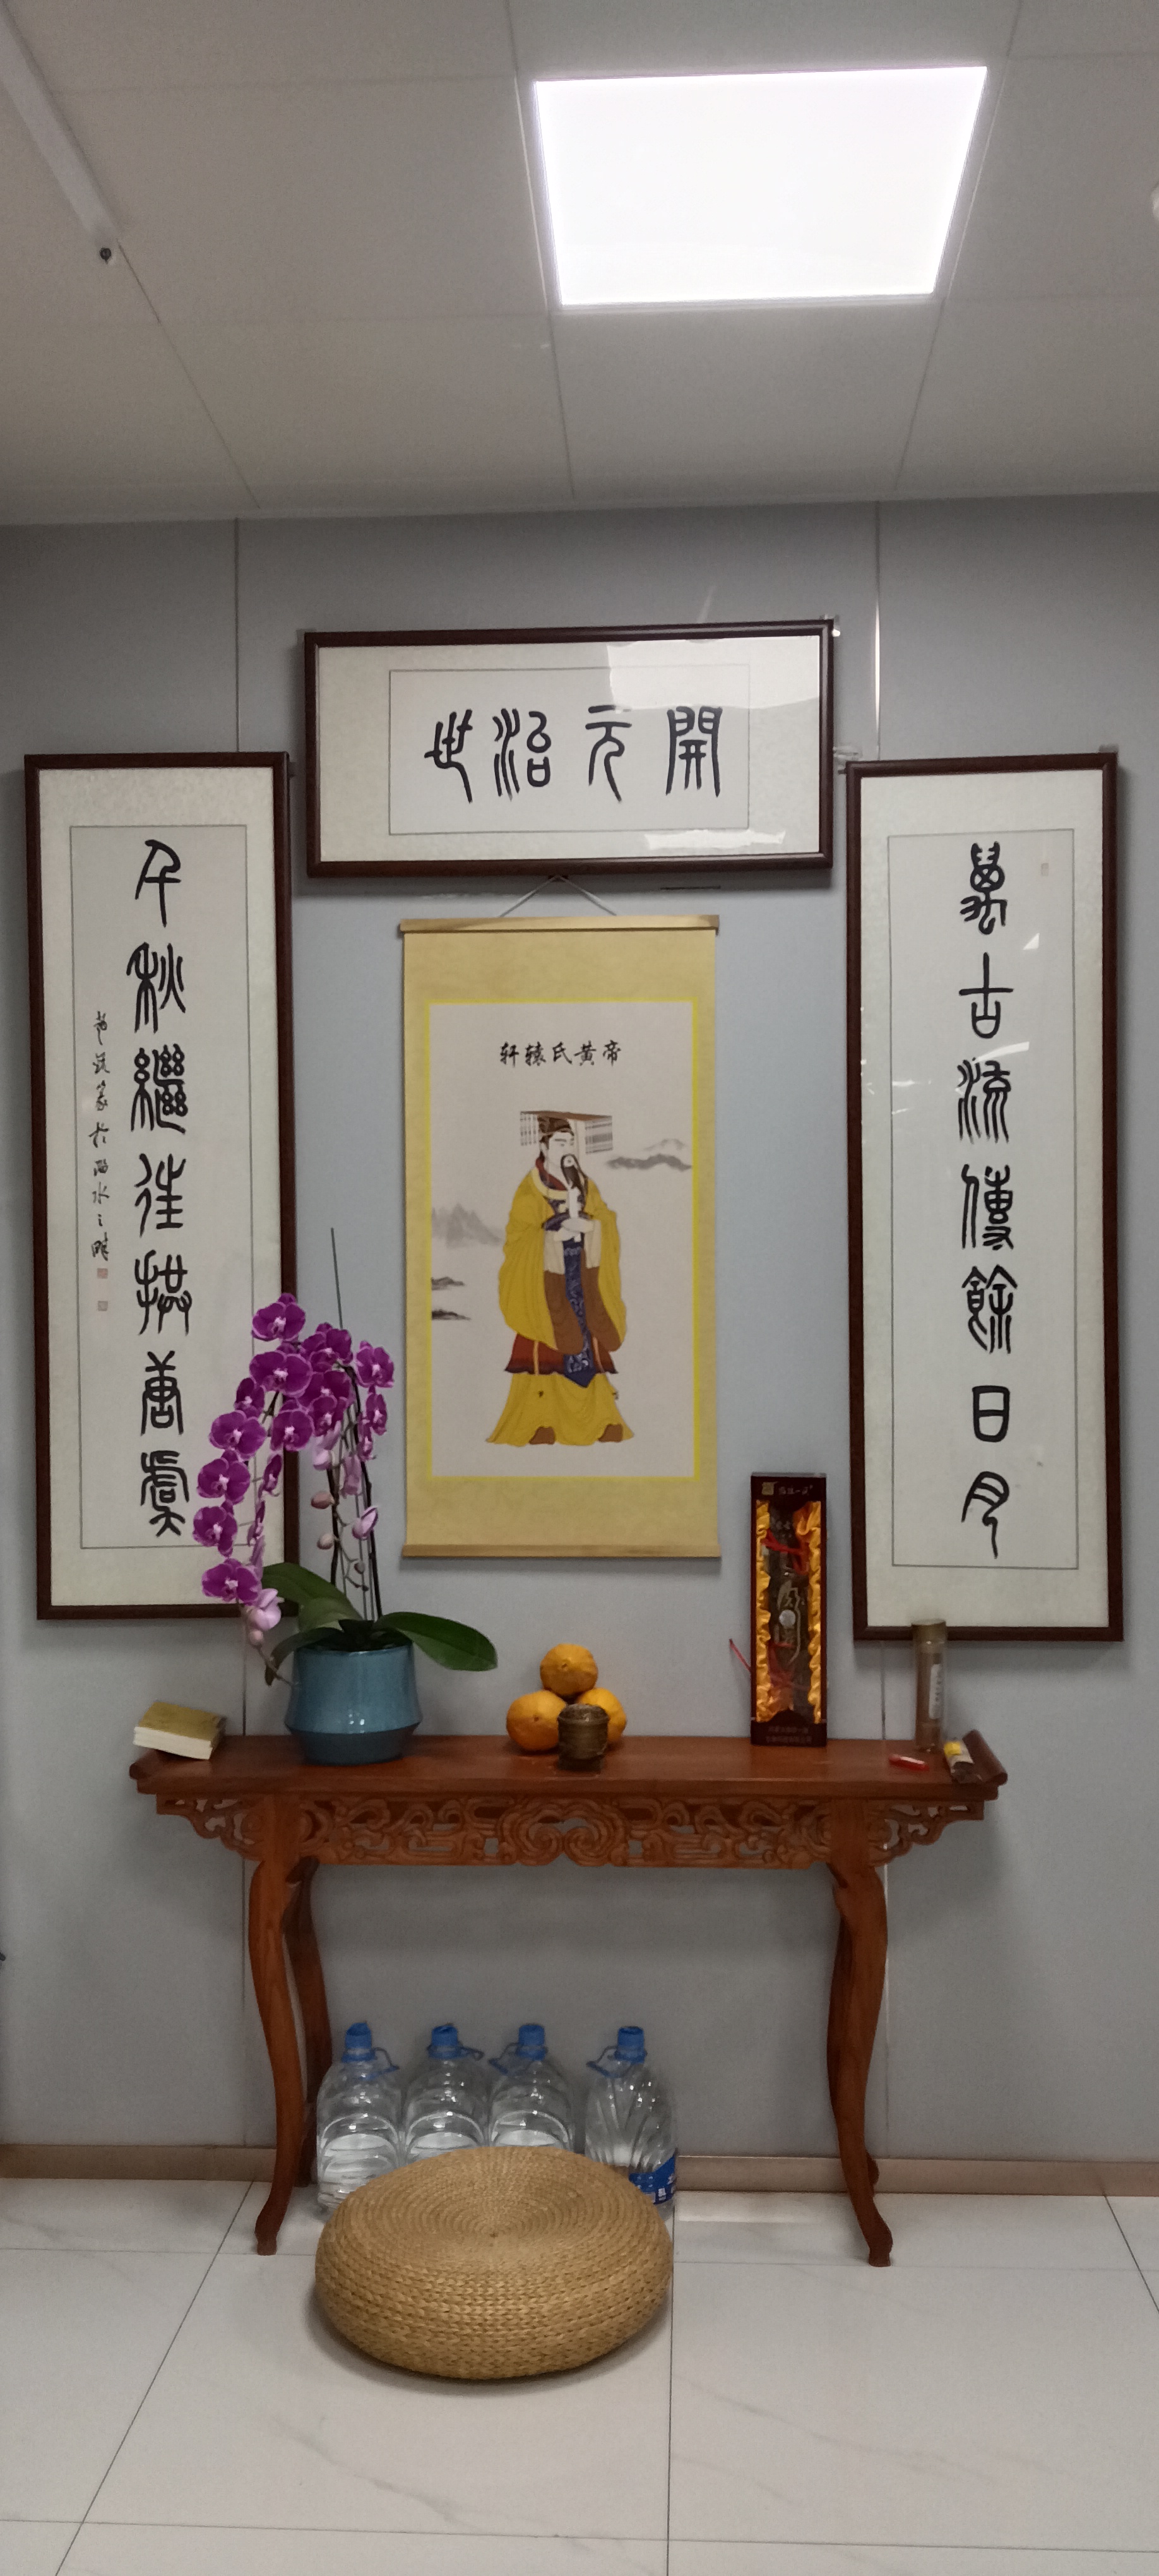 開元治世
萬古流傳餘日月
千秋繼往拱唐虞
轩辕氏黄帝